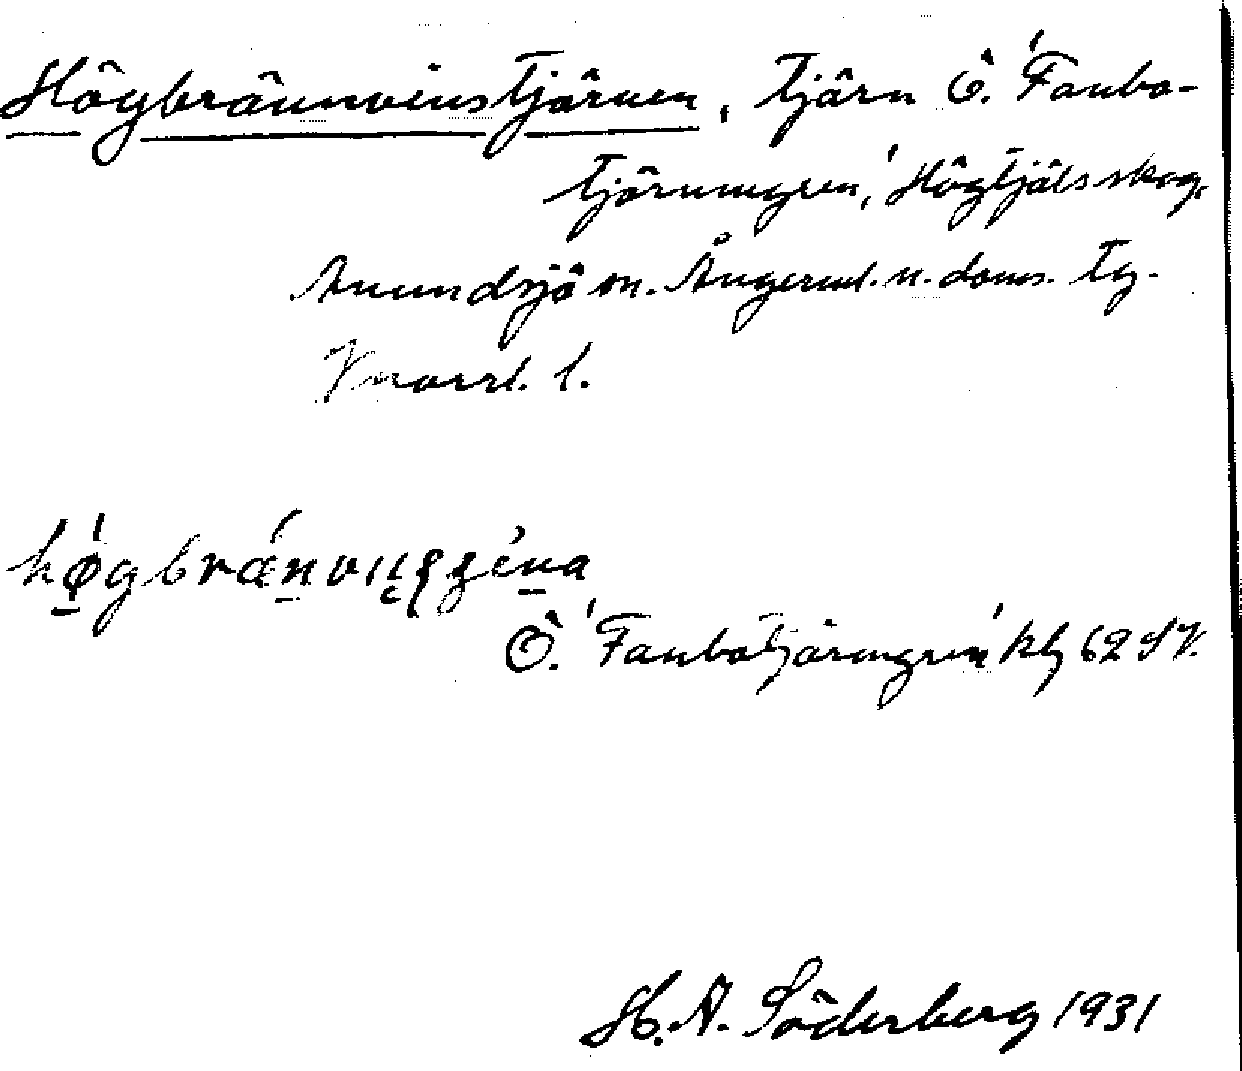 Högbrännvinstjärnen, tjärn Ö. 'Fanbo-
tjärnmyren', Högtjäls skog,
Anundsjö sn. Ångerml. n. doms. tg.
Vnorrl. l.
Ö. 'Fanbotjärnmyren' kbl 62 SV.
H. A. Söderberg 1931